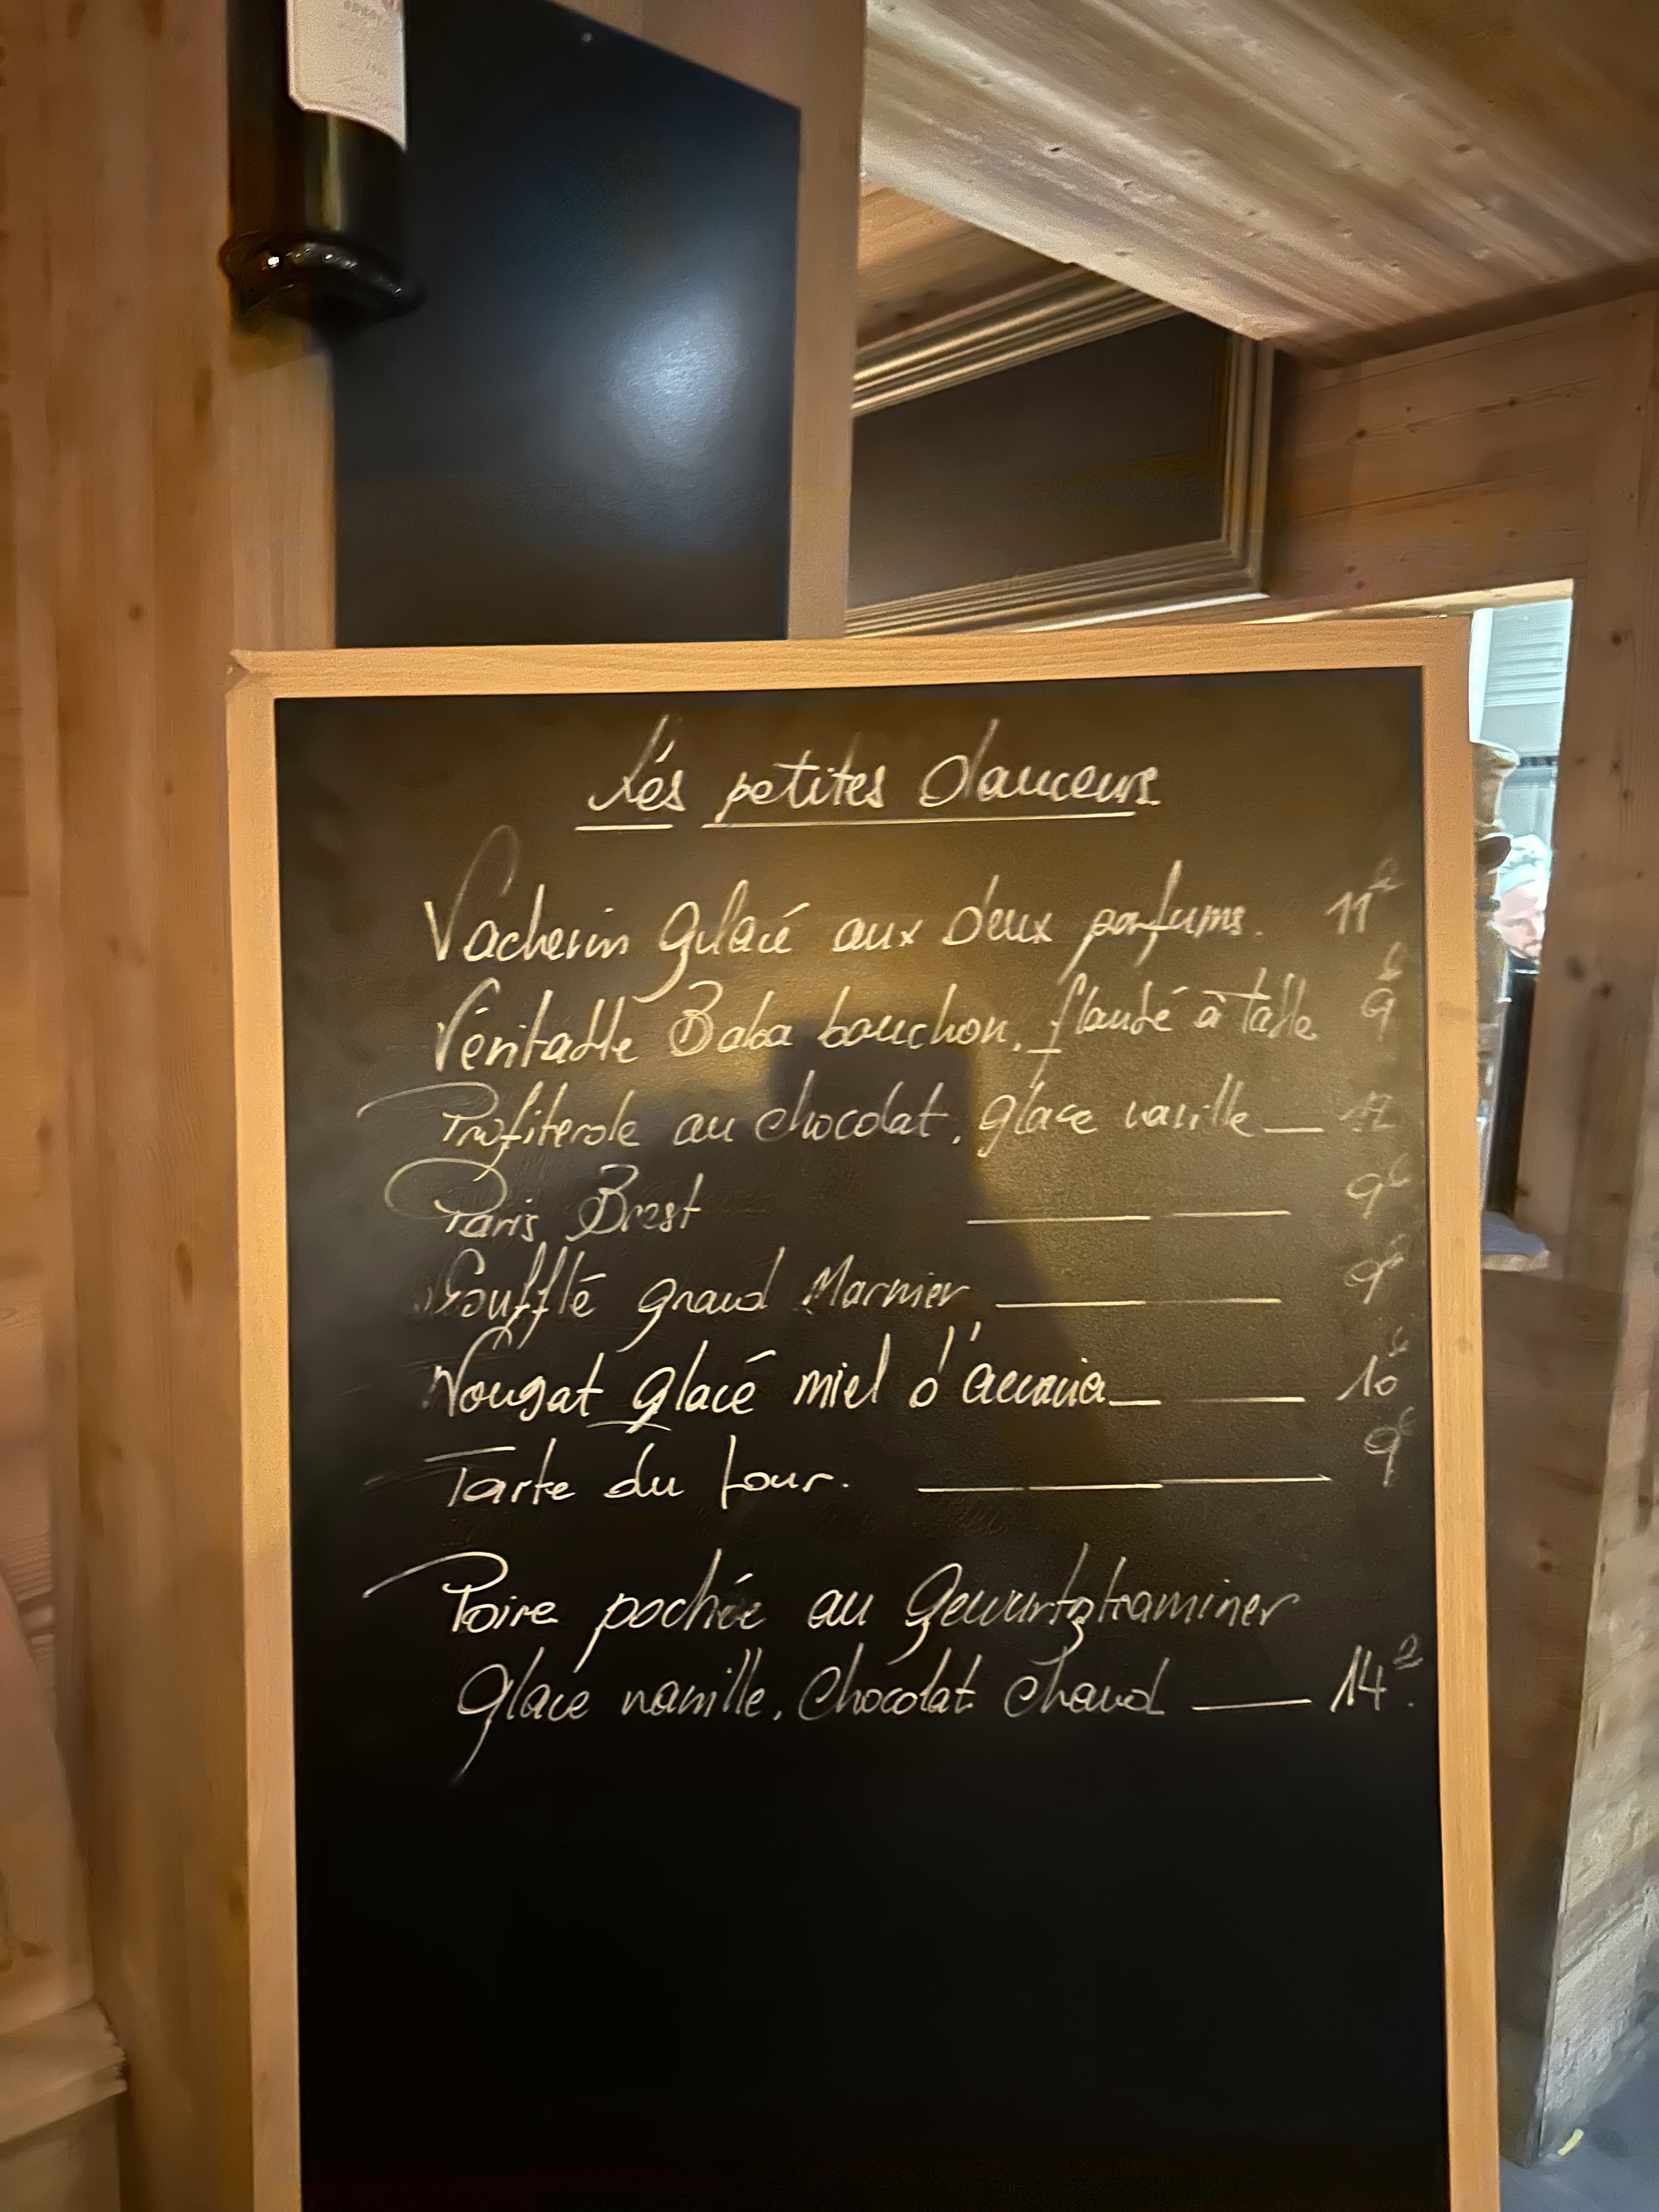 Les petites douceurs
Vacherin glacé aux deux parfums. 11€
Véritable Baba bouchon, flambé à table 9€
Profiterole au chocolat, glace vanille — 12
Paris Brest — — 9€
Soufflé grand Marnier — — 9€
Nougat glacé miel d'accacia — — 10€
Tarte du jour. — — 9€
Poire pochée au Gewurtztraminer
glace vanille, Chocolat chaud — 14€.